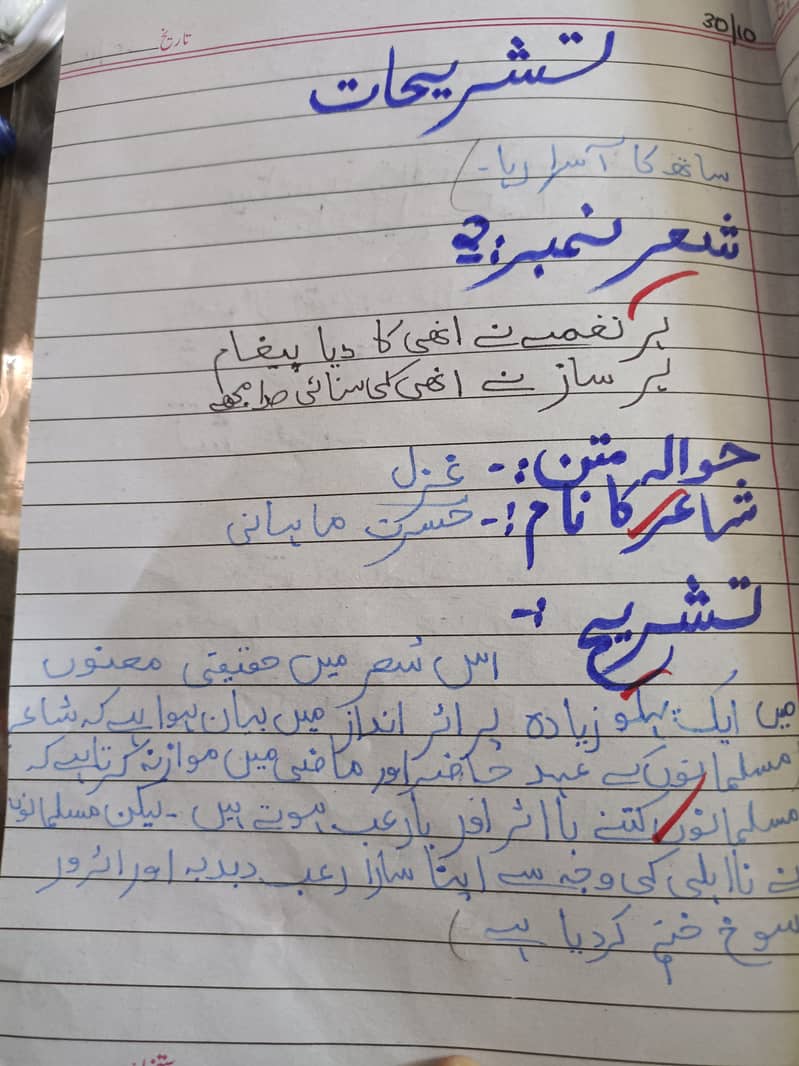 تاریخ
30/10
تشریحات
ساتھ کا آسرا رہا۔
شعر نمبر:2
ہر نغمے نے انھی کا دیا پیغام
ہر ساز نے انھی کی سنائی صدا مجھے
حوالہ متن:- غزل
شاعر کا نام:- حسرت ماہانی
تشریح :-
اس شعر میں حقیقی معنوں
میں ایک پہلو زیادہ پر اثر انداز میں بیان ہوا ہے کہ شاعر
مسلمانوں کے عہد حاضر اور ماضی میں موازنہ کرتا ہے کہ
مسلمانوں کتنے بااثر اور بارعب ہوتے ہیں ۔ لیکن مسلمانوں
نے نااہلی کی وجہ سے اپنا سارا رعب دبدبہ اور اثر ور
سوخ ختم کر دیا ہے